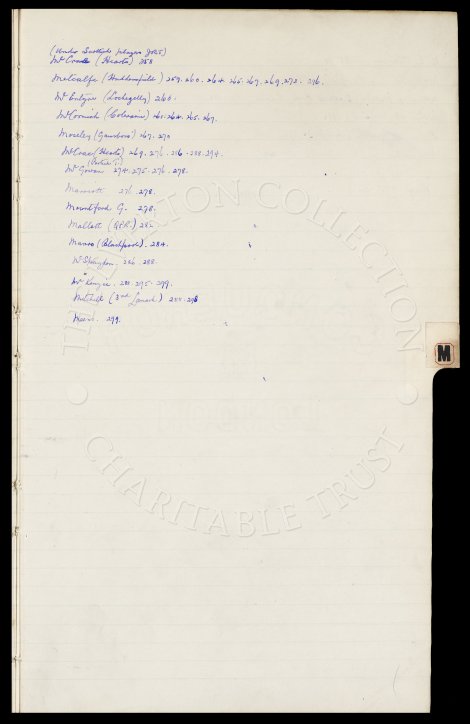 (Under Scottish players 1925)
Mc (Hearts) 258
Metcalfe (Huddersfield) 259. 260. 264. 265. 267. 269. 272. 296.
Mc Entyre (Lochgelly) 260.
McCormick (Coleraine) 264. 265. 267.
Moseley (Gainsboro) 267. 270
McCrae (Hearts) 269. 276. 286. 288. 294.
Mc Gowan 274. 275. 276. 278.
Marriott 276. 278.
Mountford G. 278.
Mallett (QPR.) 282.
Munro (Blackpool) 284.
286. 288.
McKenzie. 288. 295. 299.
Mitchell (3rd Lanark) 288. 298
299.
M
THE EVERTON COLLECTION
CHARITABLE TRUST